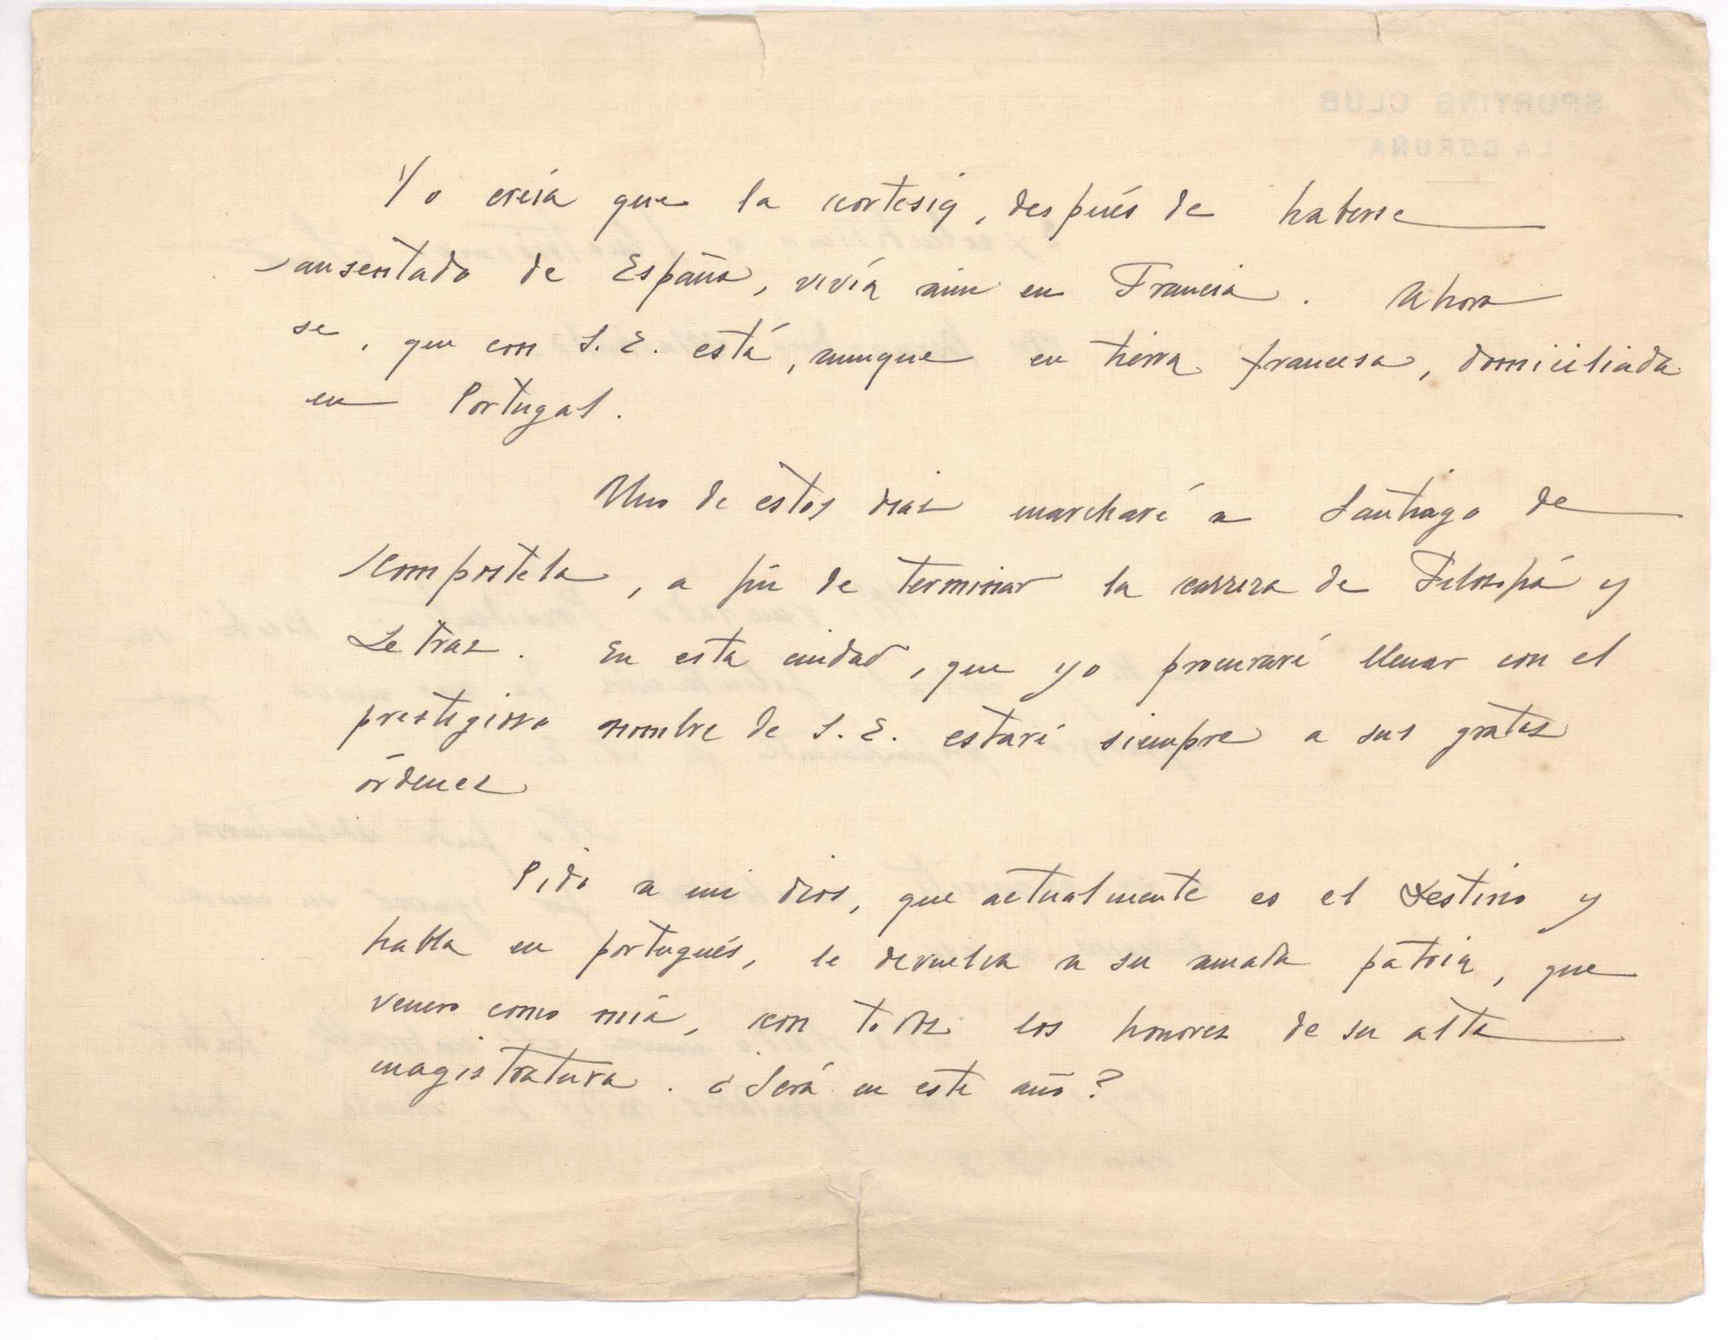 SPORTING CLUB
LA CORUÑA
Yo creía que la cortesía, después de haberse
ausentado de España, vivía aún en Francia. Ahora
se, que con S. E. está, aunque en tierra francesa, domiciliada
en Portugal.
Uno de estos dias marcharé a Santiago de
Compostela, a fin de terminar la carrera de Filosofía y
Letras. En esta ciudad, que yo procuraré llenar con el
prestigioso nombre de S. E. estaré siempre a sus gratas
órdenes
Pido a mi dios, que actualmente es el Destino y
habla en portugués, le devuelva a su amada patria, que
venero como mía, con todos los honores de su alta
magistratura. ¿Será en este año?